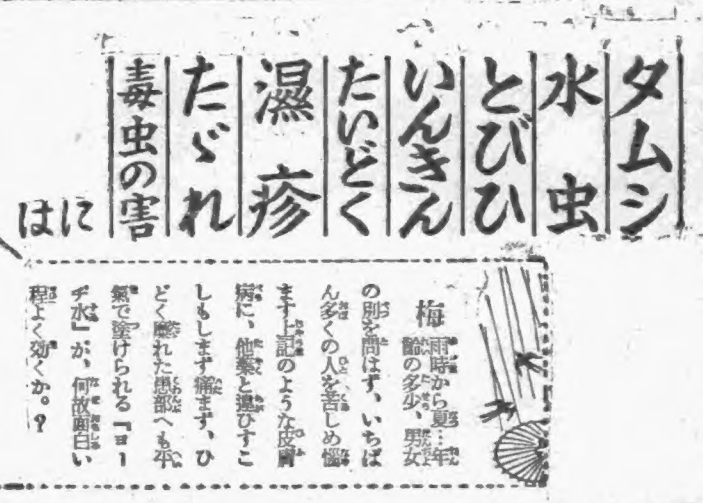 タムシ
水虫
とびひ
いんきん
たいどく
濕疹
たゞれ
毒虫の害
には
梅雨時から夏…年
齡の多少、男女
の別を問はず、いちば
ん多くの人を苦しめ惱
ます上記のような皮膚
病に、他藥と違ひすこ
しもしまず痛まず、ひ
どく爛れた患部へも平
氣で塗けられる『ヨー
チ水』が、何故面白い
程よく効くか。?